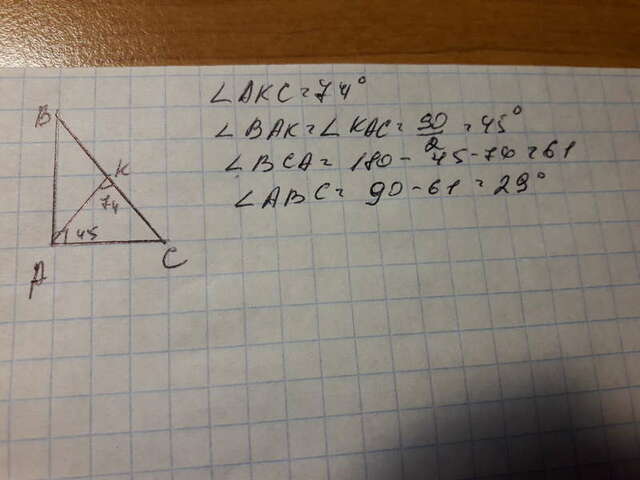 A
B
C
K
45
74
∠AKC = 74°
∠BAK = ∠KAC = 90/2 = 45°
∠BCA = 180 - 45 - 74 = 61
∠ABC = 90 - 61 = 29°